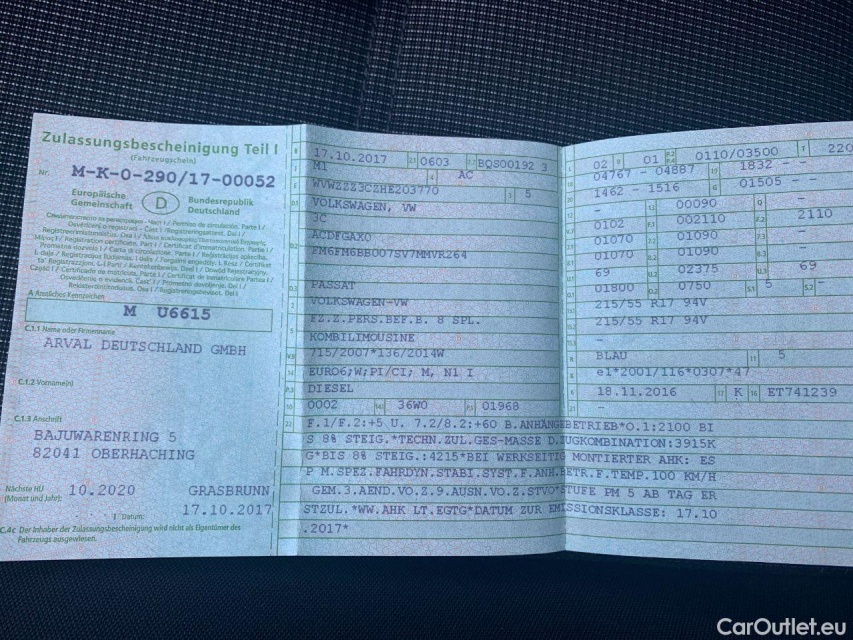 Zulassungsbescheinigung Teil I
(Fahrzeugschein)
Nr. M-K-0-290/17-00052
Europäische Gemeinschaft
D
Bundesrepublik Deutschland
A Amtliches Kennzeichen
M U6615
C.1.1 Name oder Firmenname
ARVAL DEUTSCHLAND GMBH
C.1.2 Vorname(n)
C.1.3 Anschrift
BAJUWARENRING 5
82041 OBERHACHING
Nächste HU (Monat und Jahr):
10.2020
GRASBRUNN
Datum: 17.10.2017
C.4c Der Inhaber der Zulassungsbescheinigung wird nicht als Eigentümer des
Fahrzeugs ausgewiesen.
17.10.2017 0603 BQS00192 3
M1 AC
WVWZZZ3CZHE203770 5
VOLKSWAGEN, VW
3C
ACDFGAX0
FM6FM6BB007SV7MMVR264
PASSAT
VOLKSWAGEN-VW
FZ.Z.PERS.BEF.B. 8 SPL.
KOMBILIMOUSINE
715/2007*136/2014W
EURO6;W;PI/CI; M, N1 I
DIESEL
0002 36W0 01968
02 01 0110/03500 220
04767 - 04887 1832 - -
1462 - 1516 01505 - -
- 00090 -
0102 002110 2110
01070 01090 -
01070 01090 -
69 02375 69
01800 0750 5 -
215/55 R17 94V
215/55 R17 94V
-
BLAU 5
e1*2001/116*0307*47
18.11.2016 K ET741239
F.1/F.2:+5 U. 7.2/8.2:+60 B.ANHÄNGEBETRIEB*O.1:2100 BI
S 8% STEIG.*TECHN.ZUL.GES-MASSE D.ZUGKOMBINATION:3915K
G*BIS 8% STEIG.:4215*BEI WERKSEITIG MONTIERTER AHK: ES
P M.SPEZ.FAHRDYN.STABI.SYST.F.ANH.BETR.F.TEMP.100 KM/H
GEM.3.AEND.VO.Z.9.AUSN.VO.Z.STVO*STUFE PM 5 AB TAG ER
STZUL.*WW.AHK LT.EGTG*DATUM ZUR EMISSIONSKLASSE: 17.10
.2017*
CarOutlet.eu